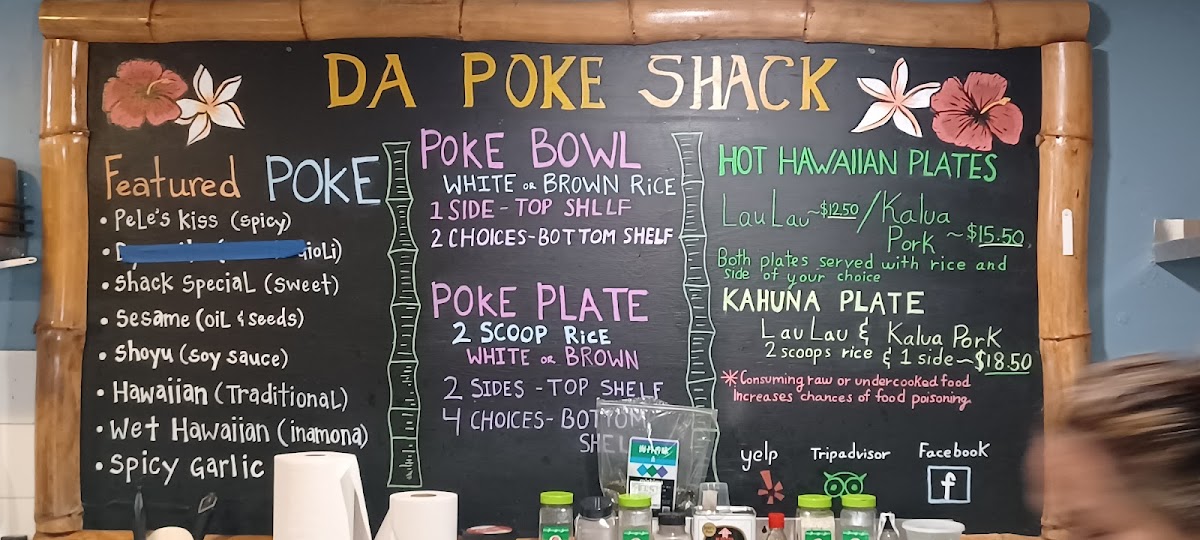 DA POKE SHACK
Featured POKE
• Pele's Kiss (spicy)
• Shack Special (sweet)
• Sesame (oil & seeds)
• Shoyu (soy sauce)
• Hawaiian (Traditional)
• Wet Hawaiian (inamona)
• Spicy Garlic
POKE BOWL
WHITE OR BROWN RiCE
1 SIDE - TOP SHLLF
2 CHOICES-BOTTOM SHELF
POKE PLATE
2 SCOOP RiCE
WHITE OR BROWN
2 SIDES - TOP SHELF
4 CHOICES- BOTTOM
SHELF
HOT HAWAIIAN PLATES
LauLau ~ $12.50 / Kalua
Pork ~ $15.50
Both plates served with rice and
side of your choice
KAHUNA PLATE
LauLau & Kalua Pork
2 scoops rice & 1 side ~ $18.50
*Consuming raw or undercooked food
Increases chances of food poisoning.
yelp Tripadvisor Facebook
f